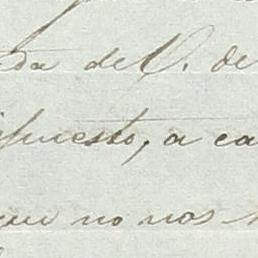 da de V. de
puesto, a ca
que no nos